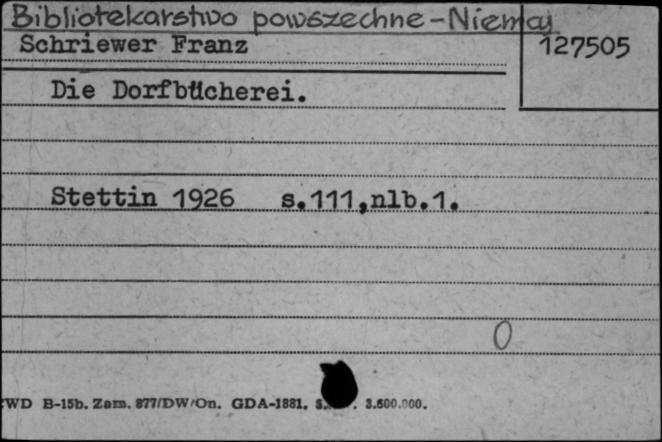 Bibliotekarstwo powszechne-Niemcy
Schriewer Franz
127505
Die Dorfbücherei.
Stettin 1926 s.111,nlb.1.
0
WD B-15b. Zam. 877/DW/On. GDA-1881. 3.600.000.